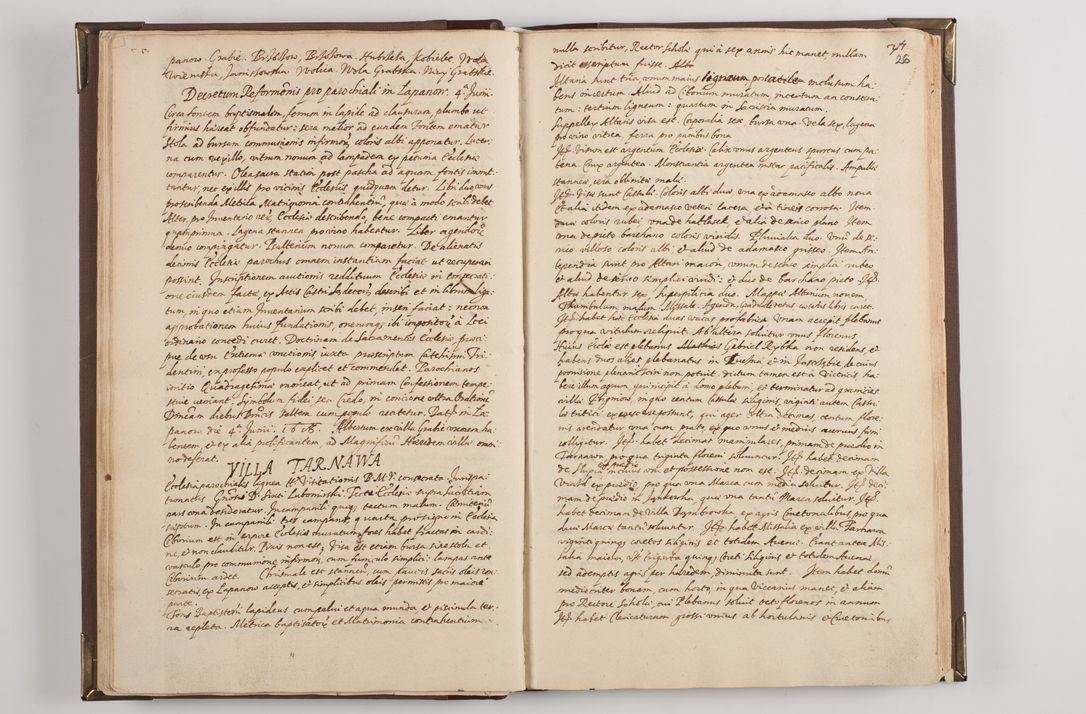 panow. Grabie. Brzozow, Brzozowa. Hubska, Kobiele. Wola
Wieniska, Janissowska. Wolica. Wola Grabska. Nizy Grabskie.
Decretum Reformonis pro parochiali in Lapanow. 4. Junii.
Circa fontem baptismalem, fornum in lapide ad clausuram, plumbo ut
firmius haereat obfundatur: sera melior ad eundem Fontem ematur
Stola ad bursam communionis infirmorum, coloris albi apponatur. Lucer-
na cum vexillo, vitrum novum ad lampadem ex pecunia Ecclesiae
comparentur. Olea sacra statim post pascha ad aquam fontis immit-
tantur, nec ex illis pro vicinis Ecclesiis quidquam detur. Libri duo, unus
proscribenda Metrica Matrimonia contrahentium, quae a modo scribi debet
Alter, pro Inventario rerum Ecclesiae describendo, bene compacti emantur
quamprimum. Lagena stannea pro vino habeatur. Liber agendorum
denuo compingatur. Psalterium novum comparetur. De alienatis
decimis Ecclesiae parochus omnem instantiam faciat ut recuperari
possint. Inscriptionem auctionis reddituum Ecclesiae in consecrati-
one eiusdem factae, ex Actis Castri Sandecen, describi et in librum liga-
tum, in quo etiam Inventarium scribi debet, inseri faciat: necnon
approbationem huius fundationis, onerumque ibi impositorum a Loci
ordinario concedi curet. Doctrinam de Sacramentis Ecclesiae praeci-
pue de usu Extremae unctionis iuxta praescriptum Catechismi Tri-
dentini, ex professo populo explicet et commendet. Parochianos
initio Quadragesimae moneat, ut ad primam Confessionem tempe-
stive veniant. Symbolum fidei seu Credo, in concione ultra Orationem
Dnicam diebus Dnicis saltem cum populo recitetur. Dat. in La-
panow die 4. Junii. 1608. Albertum ex villa Grabie uxorem ha-
bentem, et ex alia prolificantem ad Magnificum Haeredem villae eius
no deferat.
VILLA TARNAWA
Ecclesia parochialis lignea Tit. Visitationis B.M.V. consecrata Jurispa-
tronatus Gnosi D. Lubomirski. Tecta Ecclesia supra Sacristiam
pars una desideratur. In campanili quoque tectum malum. Cimiterium
saeptum. In campanili tres campanae, quarta pro signo in Ecclesia
Ciborium est in corpore Ecclesiae muratum, fores habet fractas in cardi-
ne, et non clauditur. Pixis non est, visa est etiam bursa sive stola et
vasculo pro communione infirmorum, cum funiculo simplici: lampas ante
Ciborium ardet. Chrismale est stanneum, cum sacris oleis con-
secratis ex Lapanow acceptis, et simplicibus oleis permistis pro maiore
parte.
Fons Baptisterii lapideus cum pelui et aqua munda et piscinula ter-
ra repleta. Metrica baptisatorum et Matrimonia contrahentium
24
26
nulla scribitur, Rector scholae qui a sex annis hic manet, nullam
dicit conscriptam fuisse.
Altaria sunt tria, unum maius ligneum portatilem inclusum ha-
bens incertum. Aliud ad Ciborium muratum incertum an consecra-
tum: tertium ligneum: quartum in Sacristia muratum.
Suppellex Altaris visa est. Corporalia sex, bursa una. Vela sex, lagena
pro vino vitrea, ferra pro panibus bona
Item Visum est argentum Ecclesiae. Calix unus argenteus spureus cum pa-
tena. Crux argentea. Monstrantia argentea instar pacificalis. Ampullae
stanneae, cera oblinitae malae.
Item Visae sunt Casulae. Coloris albi duae, una ex adamasco albo nova
et alia itidem ex adamasco veteri lacera, et a tineis corrosa. Item
duae coloris rubei una de hatlasek, et alia de serico plano. Item
una de picto barchano coloris viridis. Pluvialia duo. Unum de se-
rico villoso coloris albi, et aliud de adamasco griseo. Item An-
tependia sunt pro Altari maiori, unum de serico simplici rubeo
et aliud de serico simplici viridi: et duo de barchano picto. Item
Albae habentur sex. Superpelicia duo. Mappae Altarium novem.
Thuribulum malum. Missale. Agenda, Graduale vetus caeteris libris caret.
Item habet haec Ecclesia duas vaccas pro fabrica. Unam accepit plebanus
pro qua vitulum reliquit. Ab altera solvitur unus florenus
Huius Ecclae est plebanus Matthias Gabriel Rybka non residens, et
habens duos alios plebanatus in et in de cuius
provisione plenarie sciri non potuit. dictum tamen est a Vicariis ha-
bere illum agrum qui incipit a domo plebani, et terminatur ad granicies
villae Rzymioni, in quo centum Casulae siliginis, viginti autem Casti-
los tritici exerescere possunt, qui ager ultra decimas centum flore-
nis arendatur una cum prato, ex quo unus et medius acervus faeni
colligitur. Item habet decimas manipulares, primam de praedio in
Tarnawa, pro qua triginta floreni solvuntur. Item habet decimam
de Slupia sed in possessione non est. Item decimam ex Villa
Wrabl ex praedio, pro qua una Marca cum media solvitur. Item deci-
mam de praedio in Jankowka, quae una tanti Marca solvitur. Item
habet decimam de Villa Zymbrowka ex agris Cmetonalibus, pro qua
duae Marcae tanti solvuntur. Item habet Missalia ex villa Tarnawa
viginti quinque coretos siliginis et totidem Avenae. Erant antea Mis-
salia maiora, ut triginta quinque Coreti Siliginis et totidem Avenae,
sed ademptis agris per haeredem, diminuta sunt. Item habet domum
mediocriter bonam, cum horto, in qua Vicarius manet, et aliam
pro Rectore Scholae, cui Plebanus solvit octo florenos in annum
Item habet Clericaturam grossi unius ab hortulanis et Cmetonibus